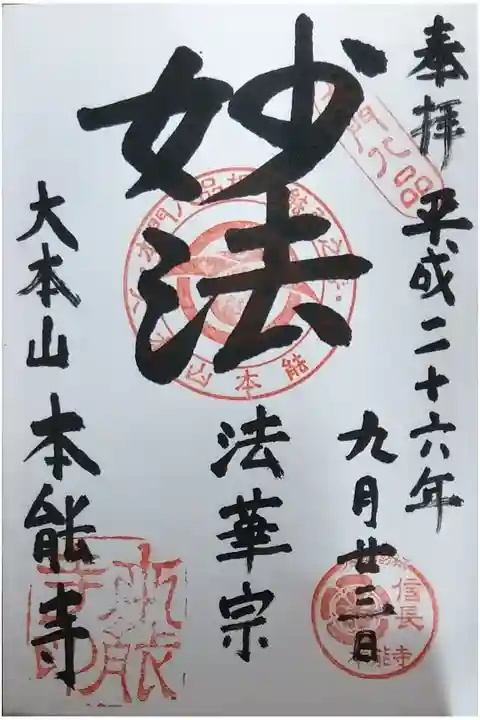 奉拝
平成二十六年
九月廿三日
妙法
法華宗
大本山
本能寺
門八品
信長